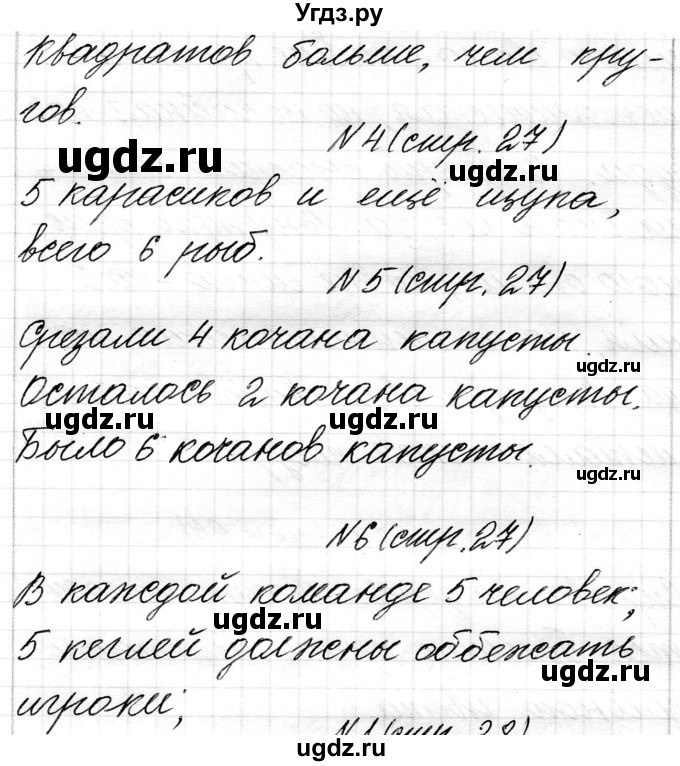 Угдз.ру
квадратов больше, чем кру-
гов.
N 4 (стр. 27)
ugdz.ru
ugdz.ru
5 карасиков и ещё щука,
всего 6 рыб.
N 5 (стр. 27)
Срезали 4 кочана капусты.
ugdz.ru
Осталось 2 кочана капусты.
ugdz.ru
ugdz.ru
Было 6 кочанов капусты.
ugdz.ru
N 6 (стр. 27)
В каждой команде 5 человек;
ugdz.ru
5 кеглей должны оббежать
ugdz.ru
игроки;
N 1 (стр. 28)
ugdz.ru